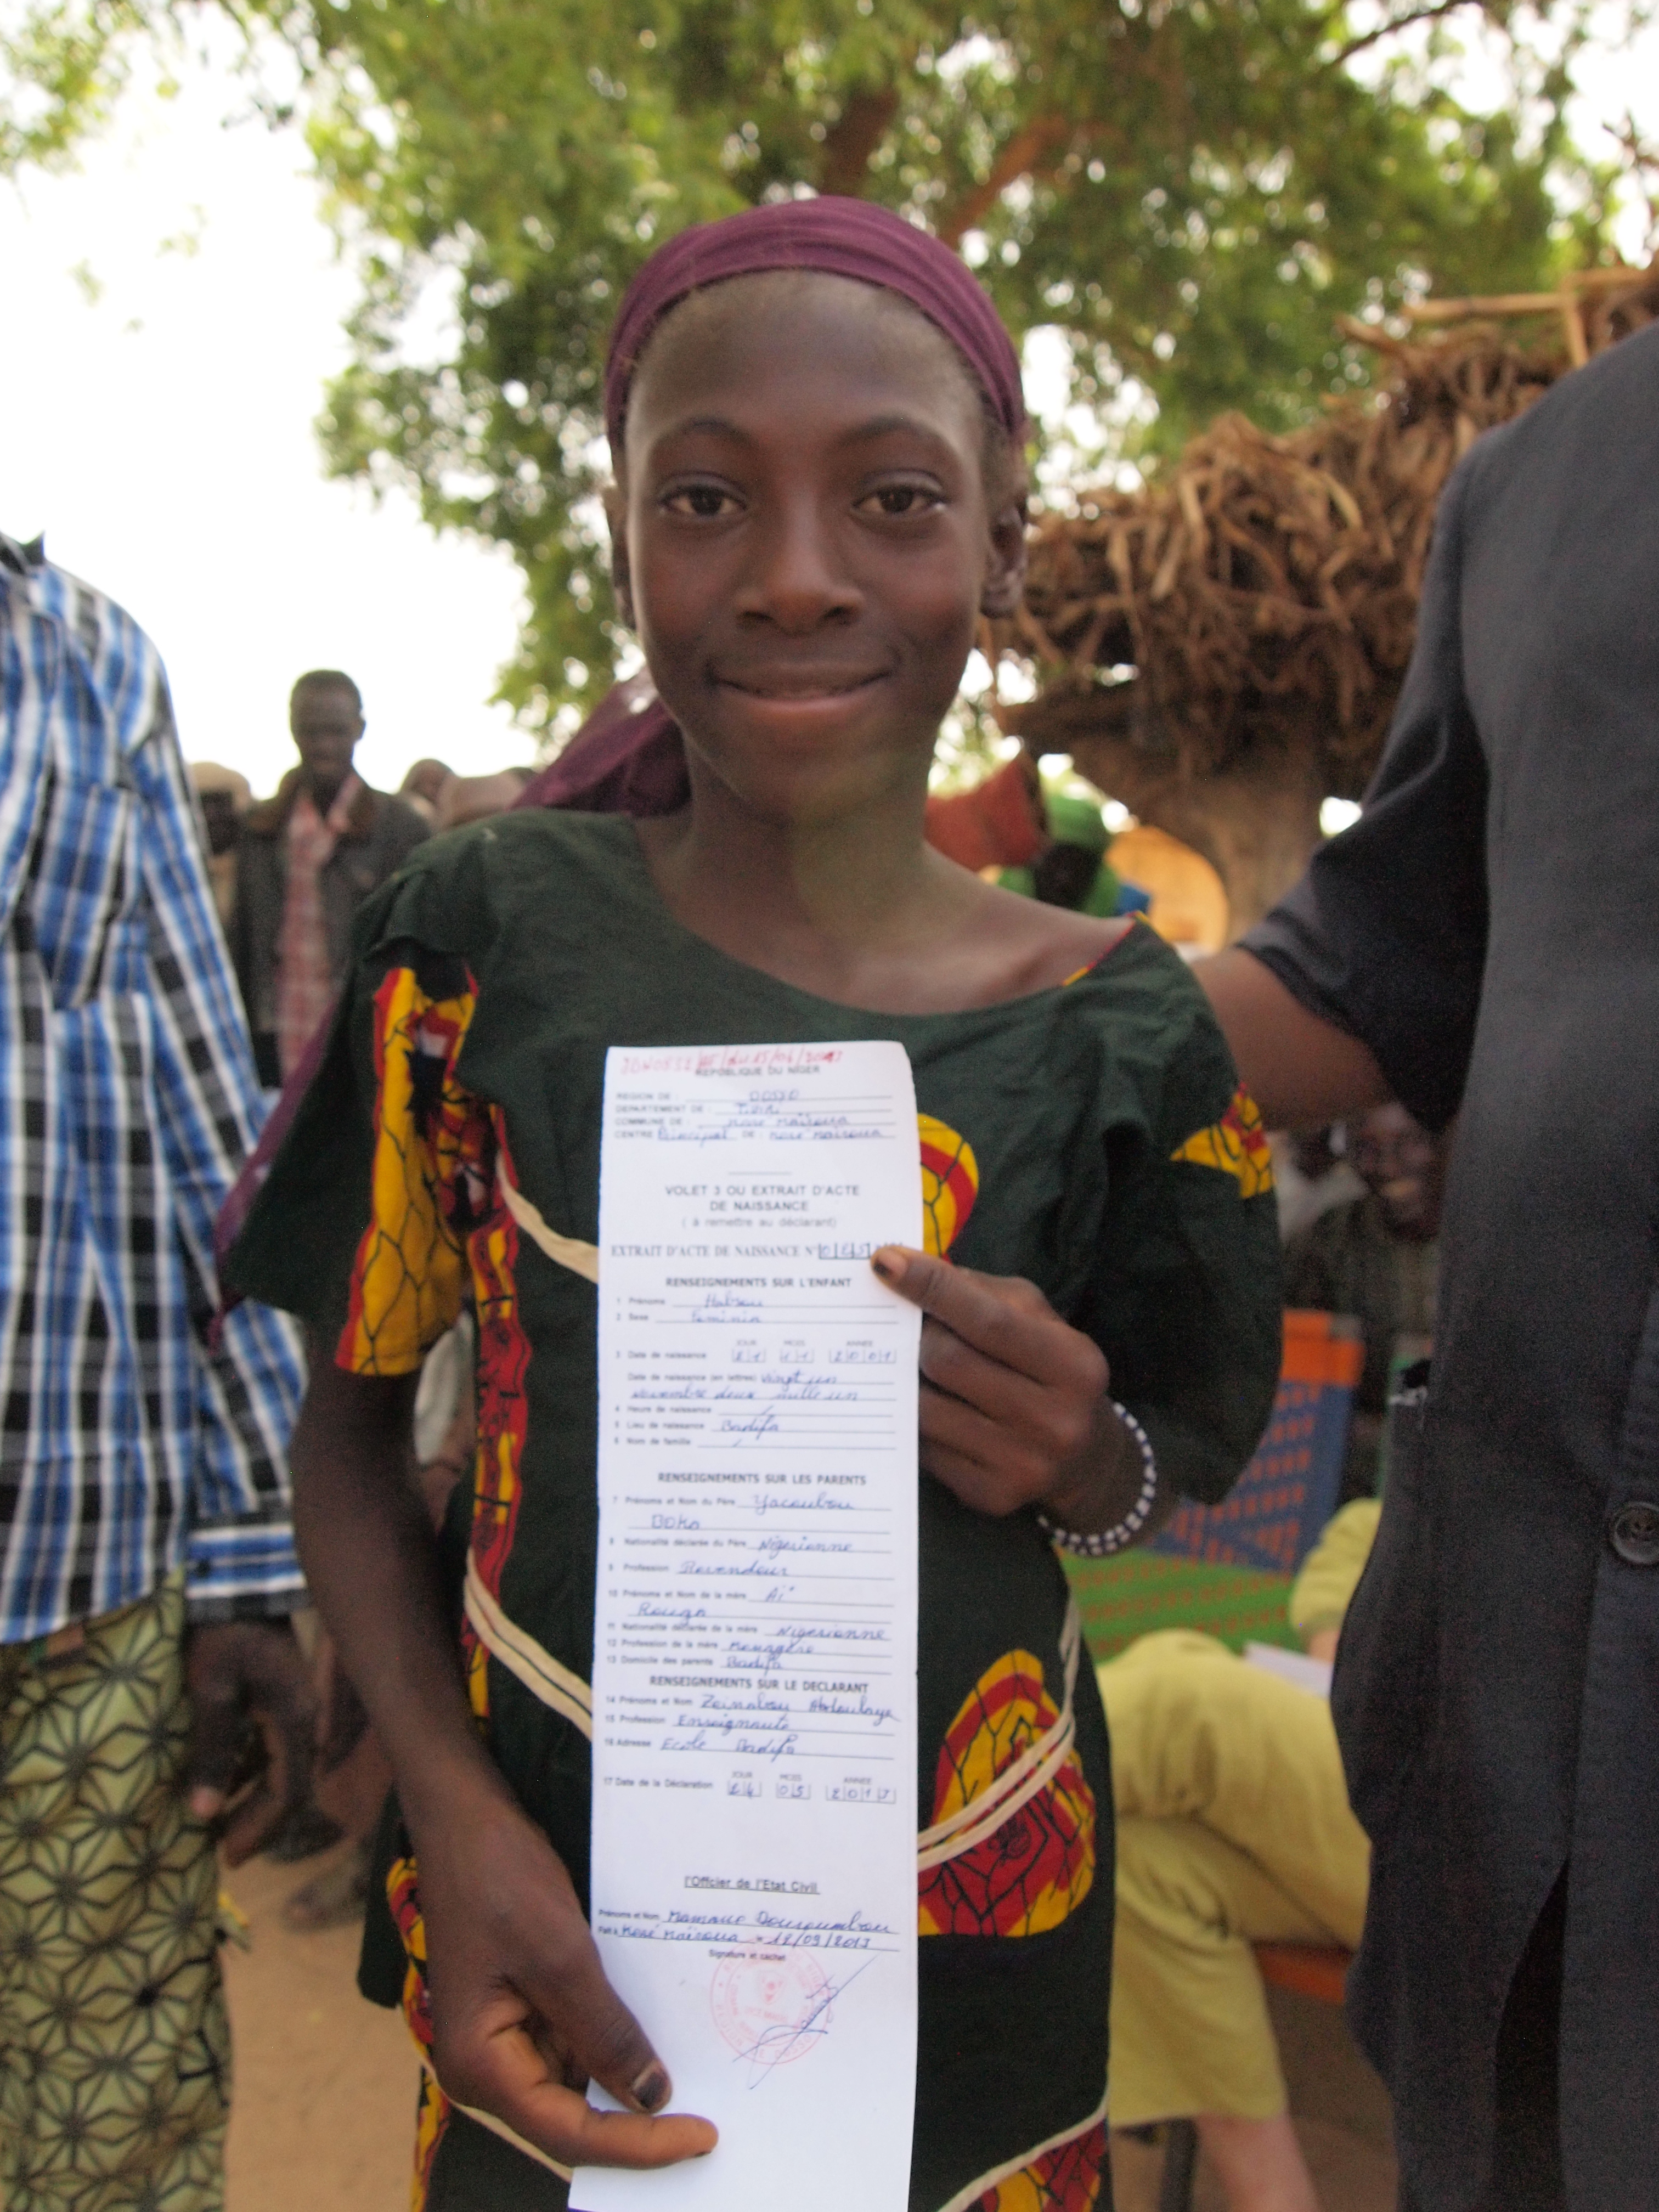 REPUBLIQUE DU NIGER
REGION DE : DOSSO
DEPARTEMENT DE : Tibiri
COMMUNE DE : Koré Maïroua
CENTRE Principal DE : Koré Maïroua
VOLET 3 OU EXTRAIT D'ACTE
DE NAISSANCE
( à remettre au déclarant)
EXTRAIT D'ACTE DE NAISSANCE N°
RENSEIGNEMENTS SUR L'ENFANT
1 Prénoms
2 Sexe Feminin
JOUR MOIS ANNEE
3 Date de naissance 21 11 2001
Date de naissance (en lettres) Vingt un
Novembre deux mille un
4 Heure de naissance
5 Lieu de naissance Badifa
6 Nom de famille
RENSEIGNEMENTS SUR LES PARENTS
7 Prénoms et Nom du Père Yacoubou
BOKA
8 Nationalité déclarée du Père Nigerienne
9 Profession Revendeur
10 Prénoms et Nom de la mère Aï
Rouga
11 Nationalité déclarée de la mère Nigerienne
12 Profession de la mère Menagère
13 Domicile des parents Badifa
RENSEIGNEMENTS SUR LE DECLARANT
14 Prénoms et Nom Zeinabou Abdoulaye
15 Profession Enseignante
16 Adresse Ecole Badifa
JOUR MOIS ANNEE
17 Date de la Déclaration 05
l'Officier de l'Etat Civil
Prénoms et Nom
Fait à Koré Maïroua 12/09/2013
Signature et cachet